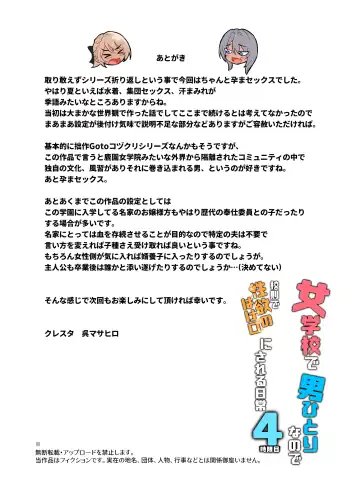 あとがき
取り敢えずシリーズ折り返しという事で今回はちゃんと孕まセックスでした。
やはり夏といえば水着、集団セックス、汗まみれが
季語みたいなところありますからね。
当初は大まかな世界観で作った話でしてここまで続けるとは考えてなかったので
まあまあ設定が後付け気味で説明不足な部分などありますがご容赦いただければ。
基本的に拙作Gotoコヅクリシリーズなんかもそうですが、
この作品で言うと鹿園女学院みたいな外界から隔離されたコミュニティの中で
独自の文化、風習がありそれに巻き込まれる男、というのが好きですね。
あと孕まセックス。
あとあくまでこの作品の設定としては
この学園に入学してる名家のお嬢様方もやはり歴代の奉仕委員との子だったり
する場合が多いです。
名家にとっては血を存続させることが目的なので特定の夫は不要で
言い方を変えれば子種さえ受け取れば良いという事ですね。
もちろん女性側が気に入れば婿養子に入ったりするのでしょうが。
主人公も卒業後は誰かと添い遂げたりするのでしょうか…(決めてない)
そんな感じで次回もお楽しみにして頂ければ幸いです。
クレスタ　呉マサヒロ
女学校で男ひとりなので
校則で性欲のはけ口にされる日常
4時限目
※
無断転載・アップロードを禁止します。
当作品はフィクションです。実在の地名、団体、人物、行事などとは関係御座いません。